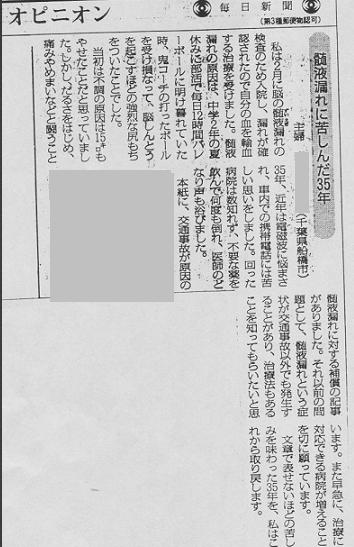 オピニオン
毎日新聞
(第3種郵便物認可)
髄液漏れに苦しんだ35年
主婦
(千葉県船橋市)
私は9月に脳の髄液漏れの
検査のため入院し、漏れが確
認されたので自分の血を輸血
する治療を受けました。髄液
漏れの原因は、中学2年の夏
休みに部活で毎日12時間バレ
ーボールに明け暮れていた
時、鬼コーチの打ったボール
を受け損なって、脳しんとう
を起こすほどの強烈な尻もち
をついたことでした。
当初は不調の原因は15㌔も
やせたことだと思っていまし
た。しかし、だるさをはじめ、
痛みやめまいなどと闘うこと
35年、近年は電磁波に悩まさ
れ、車内での携帯電話には苦
しい思いをしました。回った
病院は数知れず、不要な薬を
飲んで何度も倒れ、医師のど
なり声も浴びました。
本紙に、交通事故が原因の
髄液漏れに対する補償の記事
がありました。それ以前の問
題として、髄液漏れという症
状が交通事故以外でも発生す
ることがあり、治療法もある
ことを知ってもらいたいと思
います。また早急に、治療に
対応できる病院が増えること
を切に願っています。
文章で表せないほどの苦し
みを味わった35年を、私はこ
れから取り戻します。